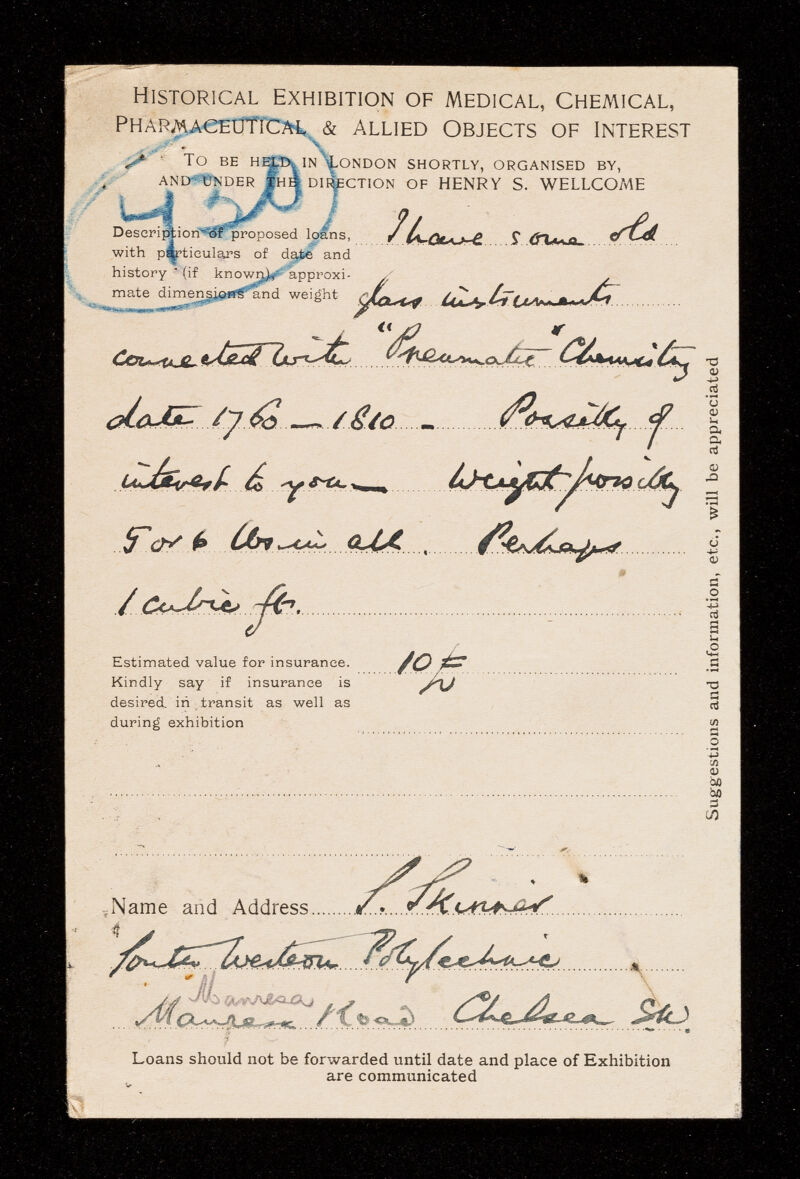 HISTORICAL EXHIBITION OF MEDICAL, CHEMICAL,
PHARMACEUTICAL & ALLIED OBJECTS OF INTEREST
TO BE HELD IN LONDON SHORTLY, ORGANISED BY,
AND UNDER THE DIRECTION OF HENRY S. WELLCOME
430
Description of proposed loans,
with particulars of date and
history (if known), approxi-
mate dimensions and weight
I have some old
glass instruments
connected with "Pneumatic" Chemistry
date 1760 — 1810 - Possibly of
interest to you — Weight possibly
5 or 6 lbs in all. Perhaps
1 cubic ft.
Estimated value for insurance.
Kindly say if insurance is
desired in transit as well as
during exhibition
10£
Suggestions and information, etc., will be appreciated
Name and Address S. Skinner
South Western Polytechnic
Manresa
Manresa Road Chelsea SW.
Loans should not be forwarded until date and place of Exhibition
are communicated